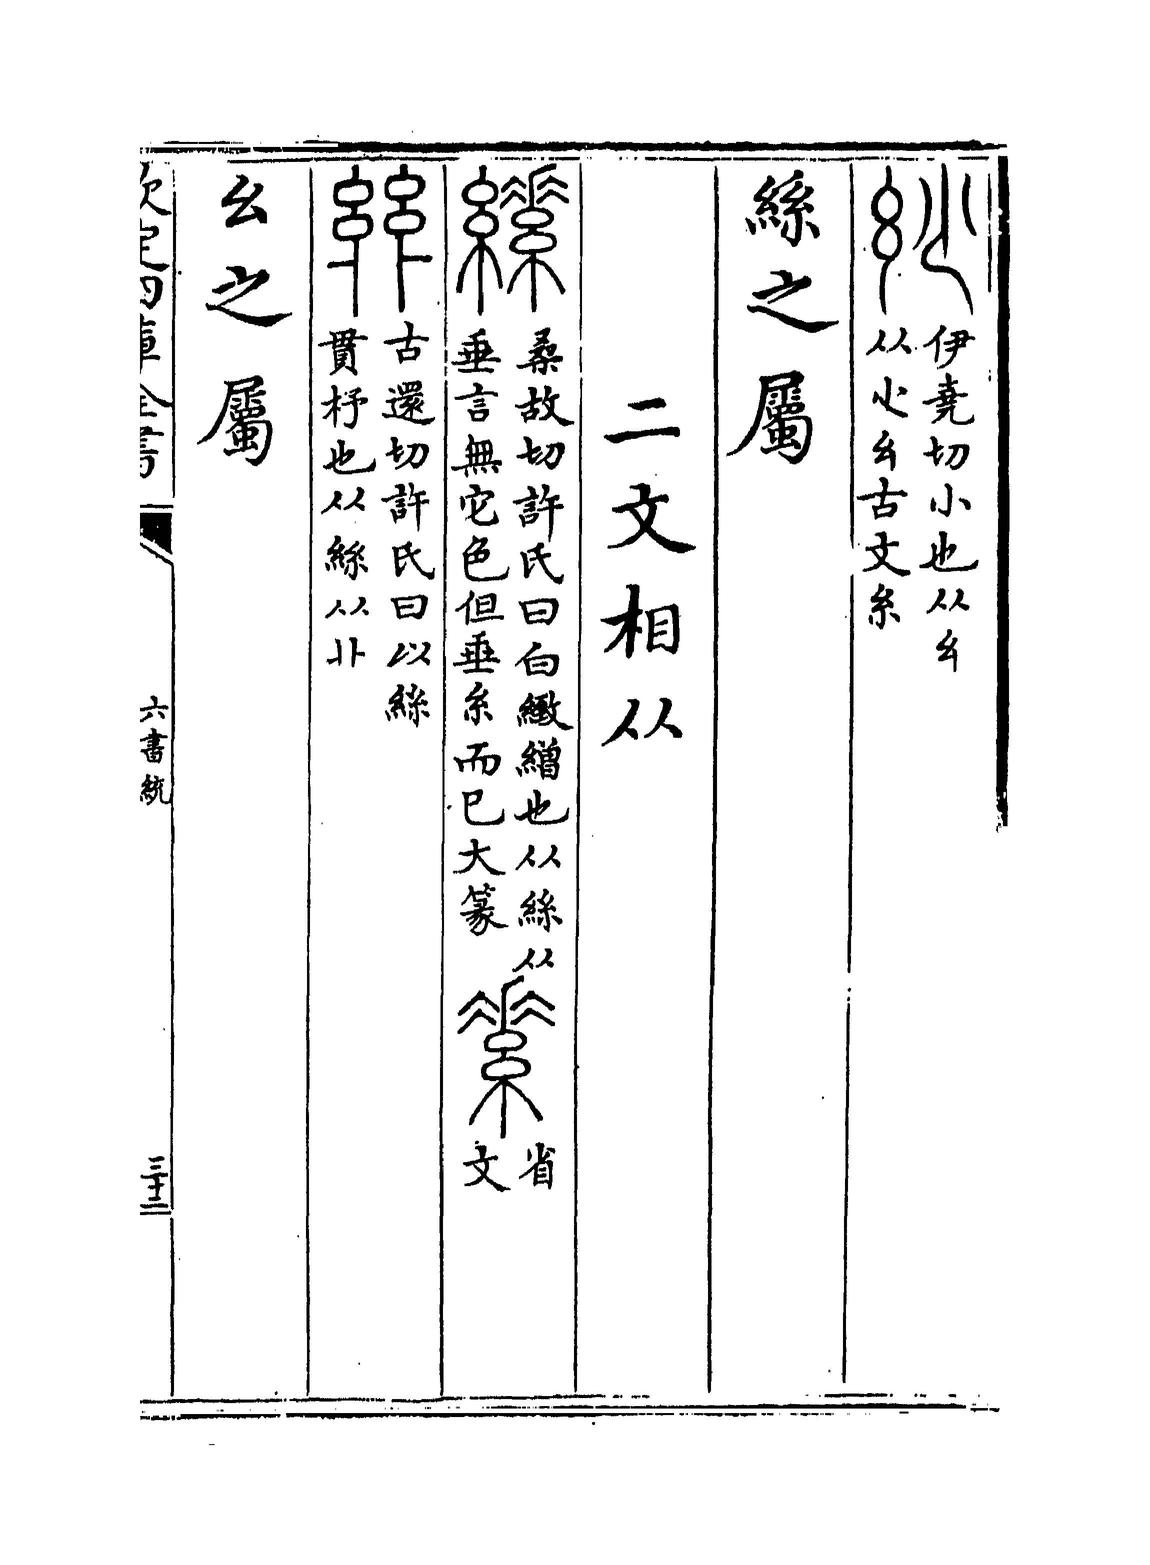 伊堯切小也从幺
从小幺古文糸
絲之屬
二文相从
桑故切許氏曰白緻繒也从絲从
垂言無它色但垂糸而巳大篆
省
文
古還切許氏曰以絲
貫杼也从絲从丱
幺之屬
欽定四庫全書
六書統
三十二